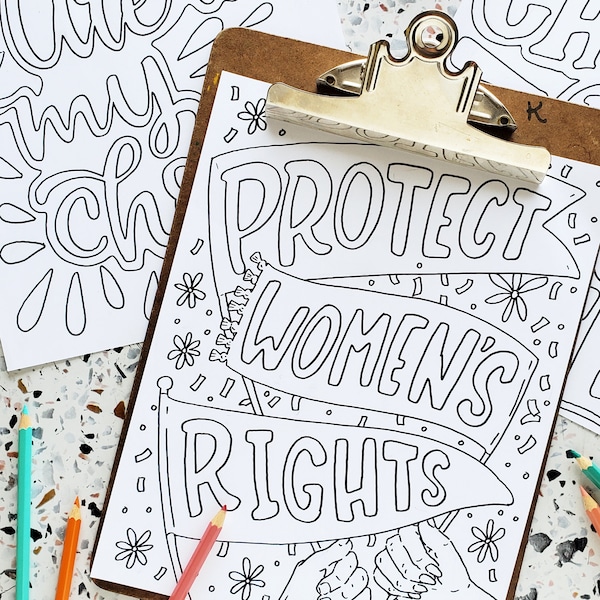 my
K
PROTECT
WOMEN'S
RIGHTS